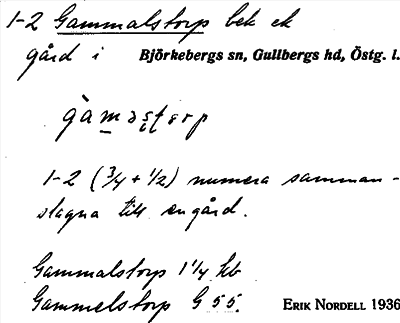 1-2 Gammalstorp bek ek
gård i Björkebergs sn, Gullbergs hd, Östg. l.
gàmast̨orp
1-2 (3/4 + 1/2) numera samman-
slagna till en gård.
Gammalstorp 1 1/4 hb
Gammelstorp G 55.
ERIK NORDELL 1936